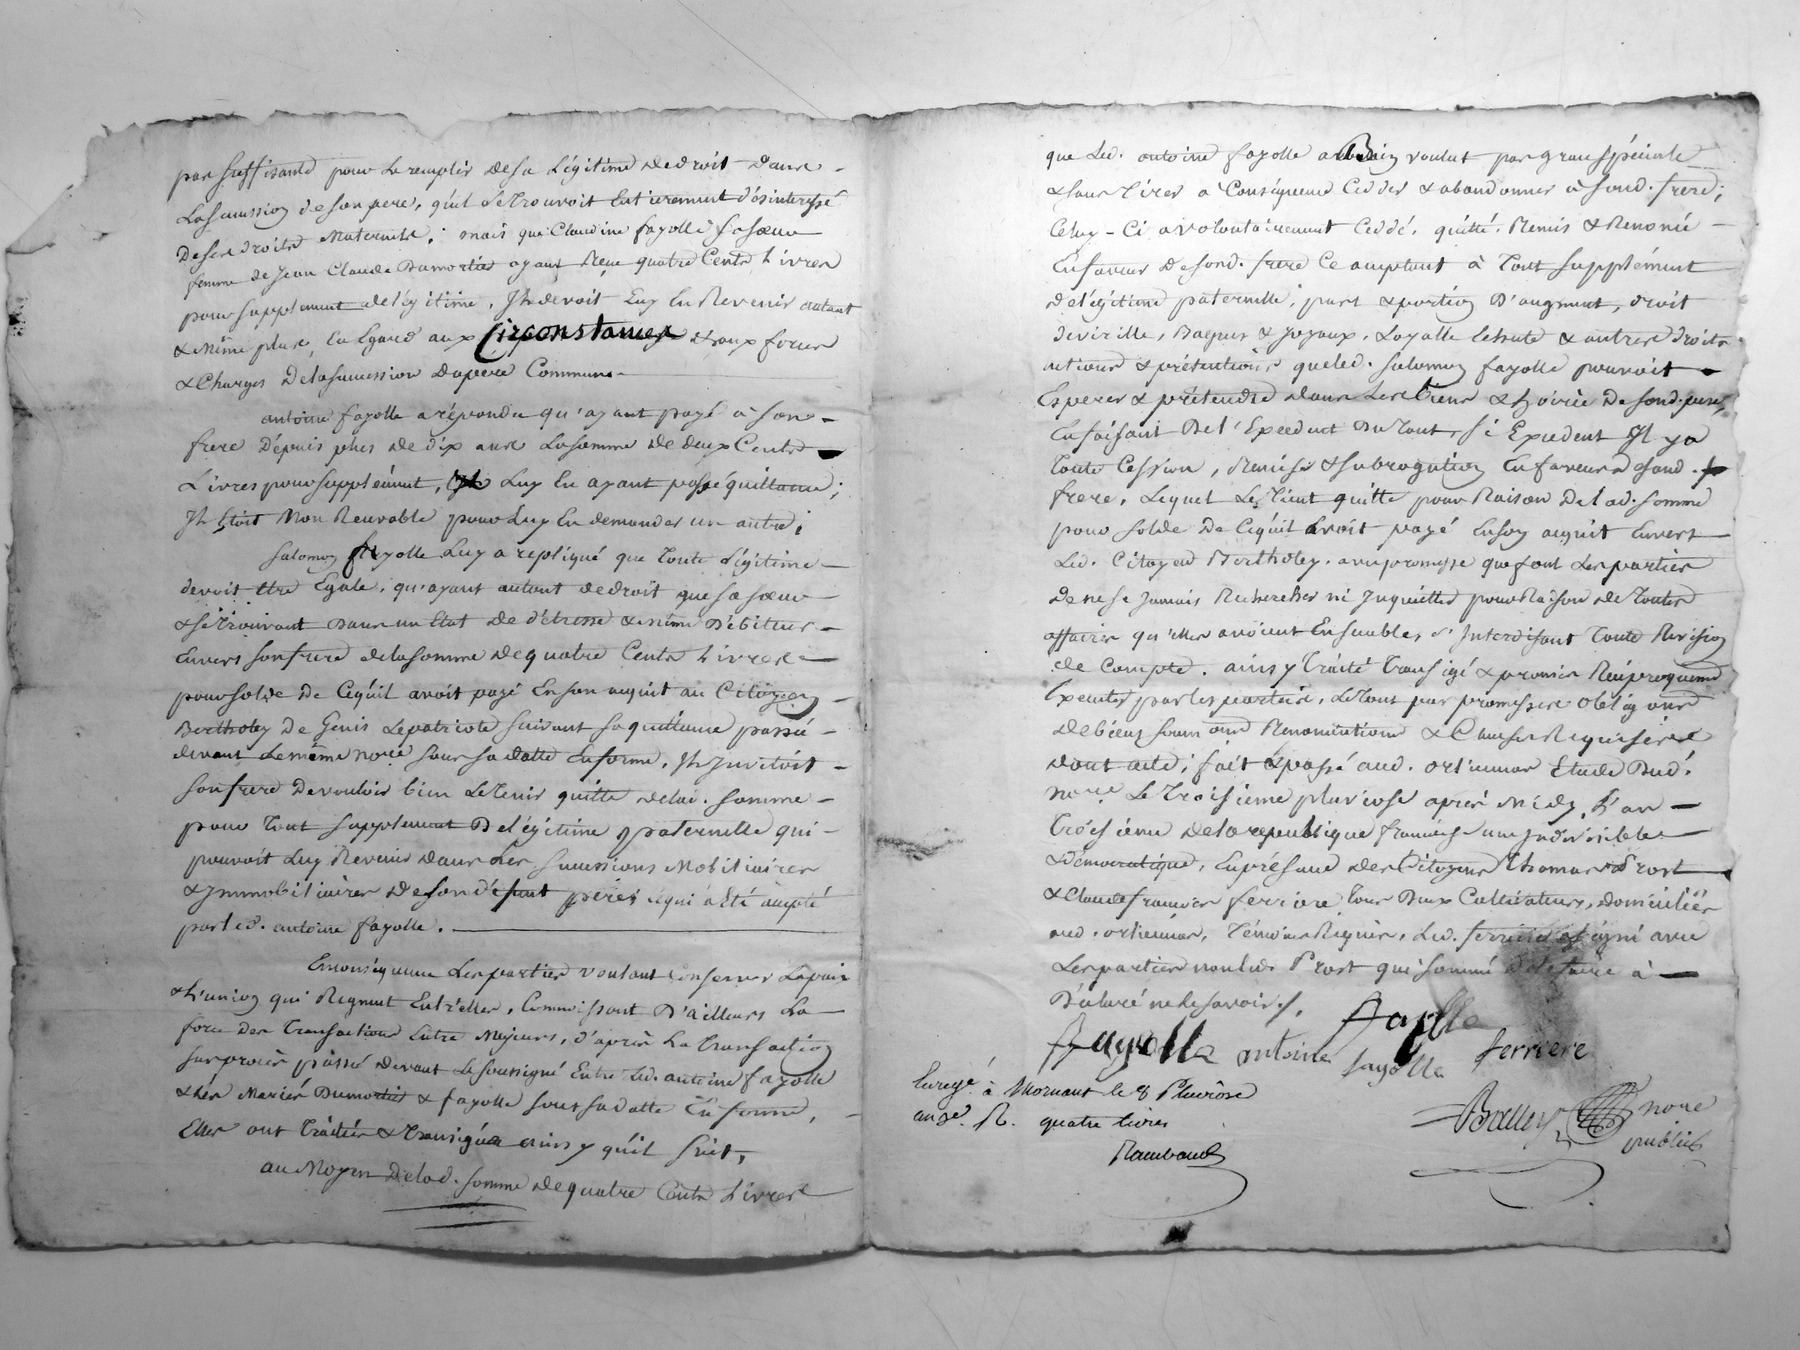 pas suffisante pour le remplir de sa légitime de droit dans
la succession de son pere, qu'il se trouvoit entierement désinteressé
de ses droits maternels; mais que Claudine fayolle sa sœur
femme de Jean Claude Dumortier ayant Reçu quatre Cents Livres
pour supplement de légitime, Il devoit Luy en Revenir autant
& même plus, eu Egard aux Circonstances & aux forces
& Charges de la succession du pere Commun
antoine fayolle a répondu qu'ayant payé à son
frere Dépuis plus de dix ans La somme de deux Cents
Livres pour supplément, & Luy en ayant passé quittance;
Il étoit Non Recevable pour Luy en demander un autre;
Salomon fayolle Luy a repliqué que toute Légitime
devoit être Egale, qu'ayant autant de droit que sa sœur
& se trouvant dans un Etat de détresse & même Débiteur
Envers son frere de la somme de quatre Cents Livres
pour solde de Cequ'il avoit payé En son acquit au Citoyen
Bertholey de Genis Le patriote suivant sa quittance passée
devant Le même no.re sous sa datte En forme, Il Invitoit
son frere de vouloir bien Le Tenir quitte de lad. somme
pour tout supplement de légitime paternelle qui
pouvoit Luy Revenir dans Les successions Mobiliaires
& Immobiliaires de son défunt pere; cequi a été accepté
par led. antoine fayolle.
En conséquence Les parties voulant conserver La paix
& L'union qui Regnent Entr'elles, Connoissant D'ailleurs La
force des Transactions Entre Majeurs, d'après La Transaction
sur procès passée devant Le soussigné Entre Led. antoine fayolle
& les Mariés Dumortier & fayolle sous sa datte En forme,
Elles ont Traitées & transigées ainsy qu'il suit,
au Moyen de lad. somme de quatre Cents Livres
que Led. antoine fayolle a Bien voulut par grace spéciale
& sans tirer a Conséquence Cedder & abandonner à sond. frere;
Celuy-Ci a volontairement Ceddé, quitté, Remis & Renoncé
En faveur de sond. frere Ce acceptant à Tout supplément
de légitime paternelle, part & portion D'augment, droit
de virille, Bagues & Joyaux, Loyalle echute & autres droits
actions & prétentions que led. Salomon fayolle pouvoit
Esperer & prétendre dans Les Biens & hoirie de sond. pere,
En faisant De l'Excedent Du Tout, si Excedent Il y a
Toute Cession, Remise & subrogation En faveur de sond.
frere, Lequel Le Tient quitte pour Raison de lad. somme
pour solde De Cequ'il avoit payé En son acquit Envers
Led. Citoyen Bertholey. avec promesse que font Les parties
de ne se Jamais Rechercher ni Inquietter pour Raison de toutes
affaires qu'elles avoient Ensembles s'Interdisant Toute Revision
de Compte. ainsy Traité Transigé & promis Réciproquement
Executer par les parties, Le Tout par promesses obligaons
de biens soumons Renonciations & Clauses Requises
dont acte; fait & passé aud. orlienas Etude Dud.
no.re Le Troisieme pluviose après Midy, L'an
Troisieme de la republique françoise une Indivisible
& démocratique, En présence des Citoyens Thomas Prost
& Claude françois ferriere tous Deux Cultivateurs, domiciliés
aud. orlienas, Témoins Requis, Led. ferriere a signé avec
Les parties non led. Prost qui sommé de le faire à
Déclaré ne Le savoir.
fayolle
fayolle antoine fayolle ferriere
Enregé à Mornant le 8 Pluviôse
an 3e. R. quatre livres
Raimbaud
Balley nore
public